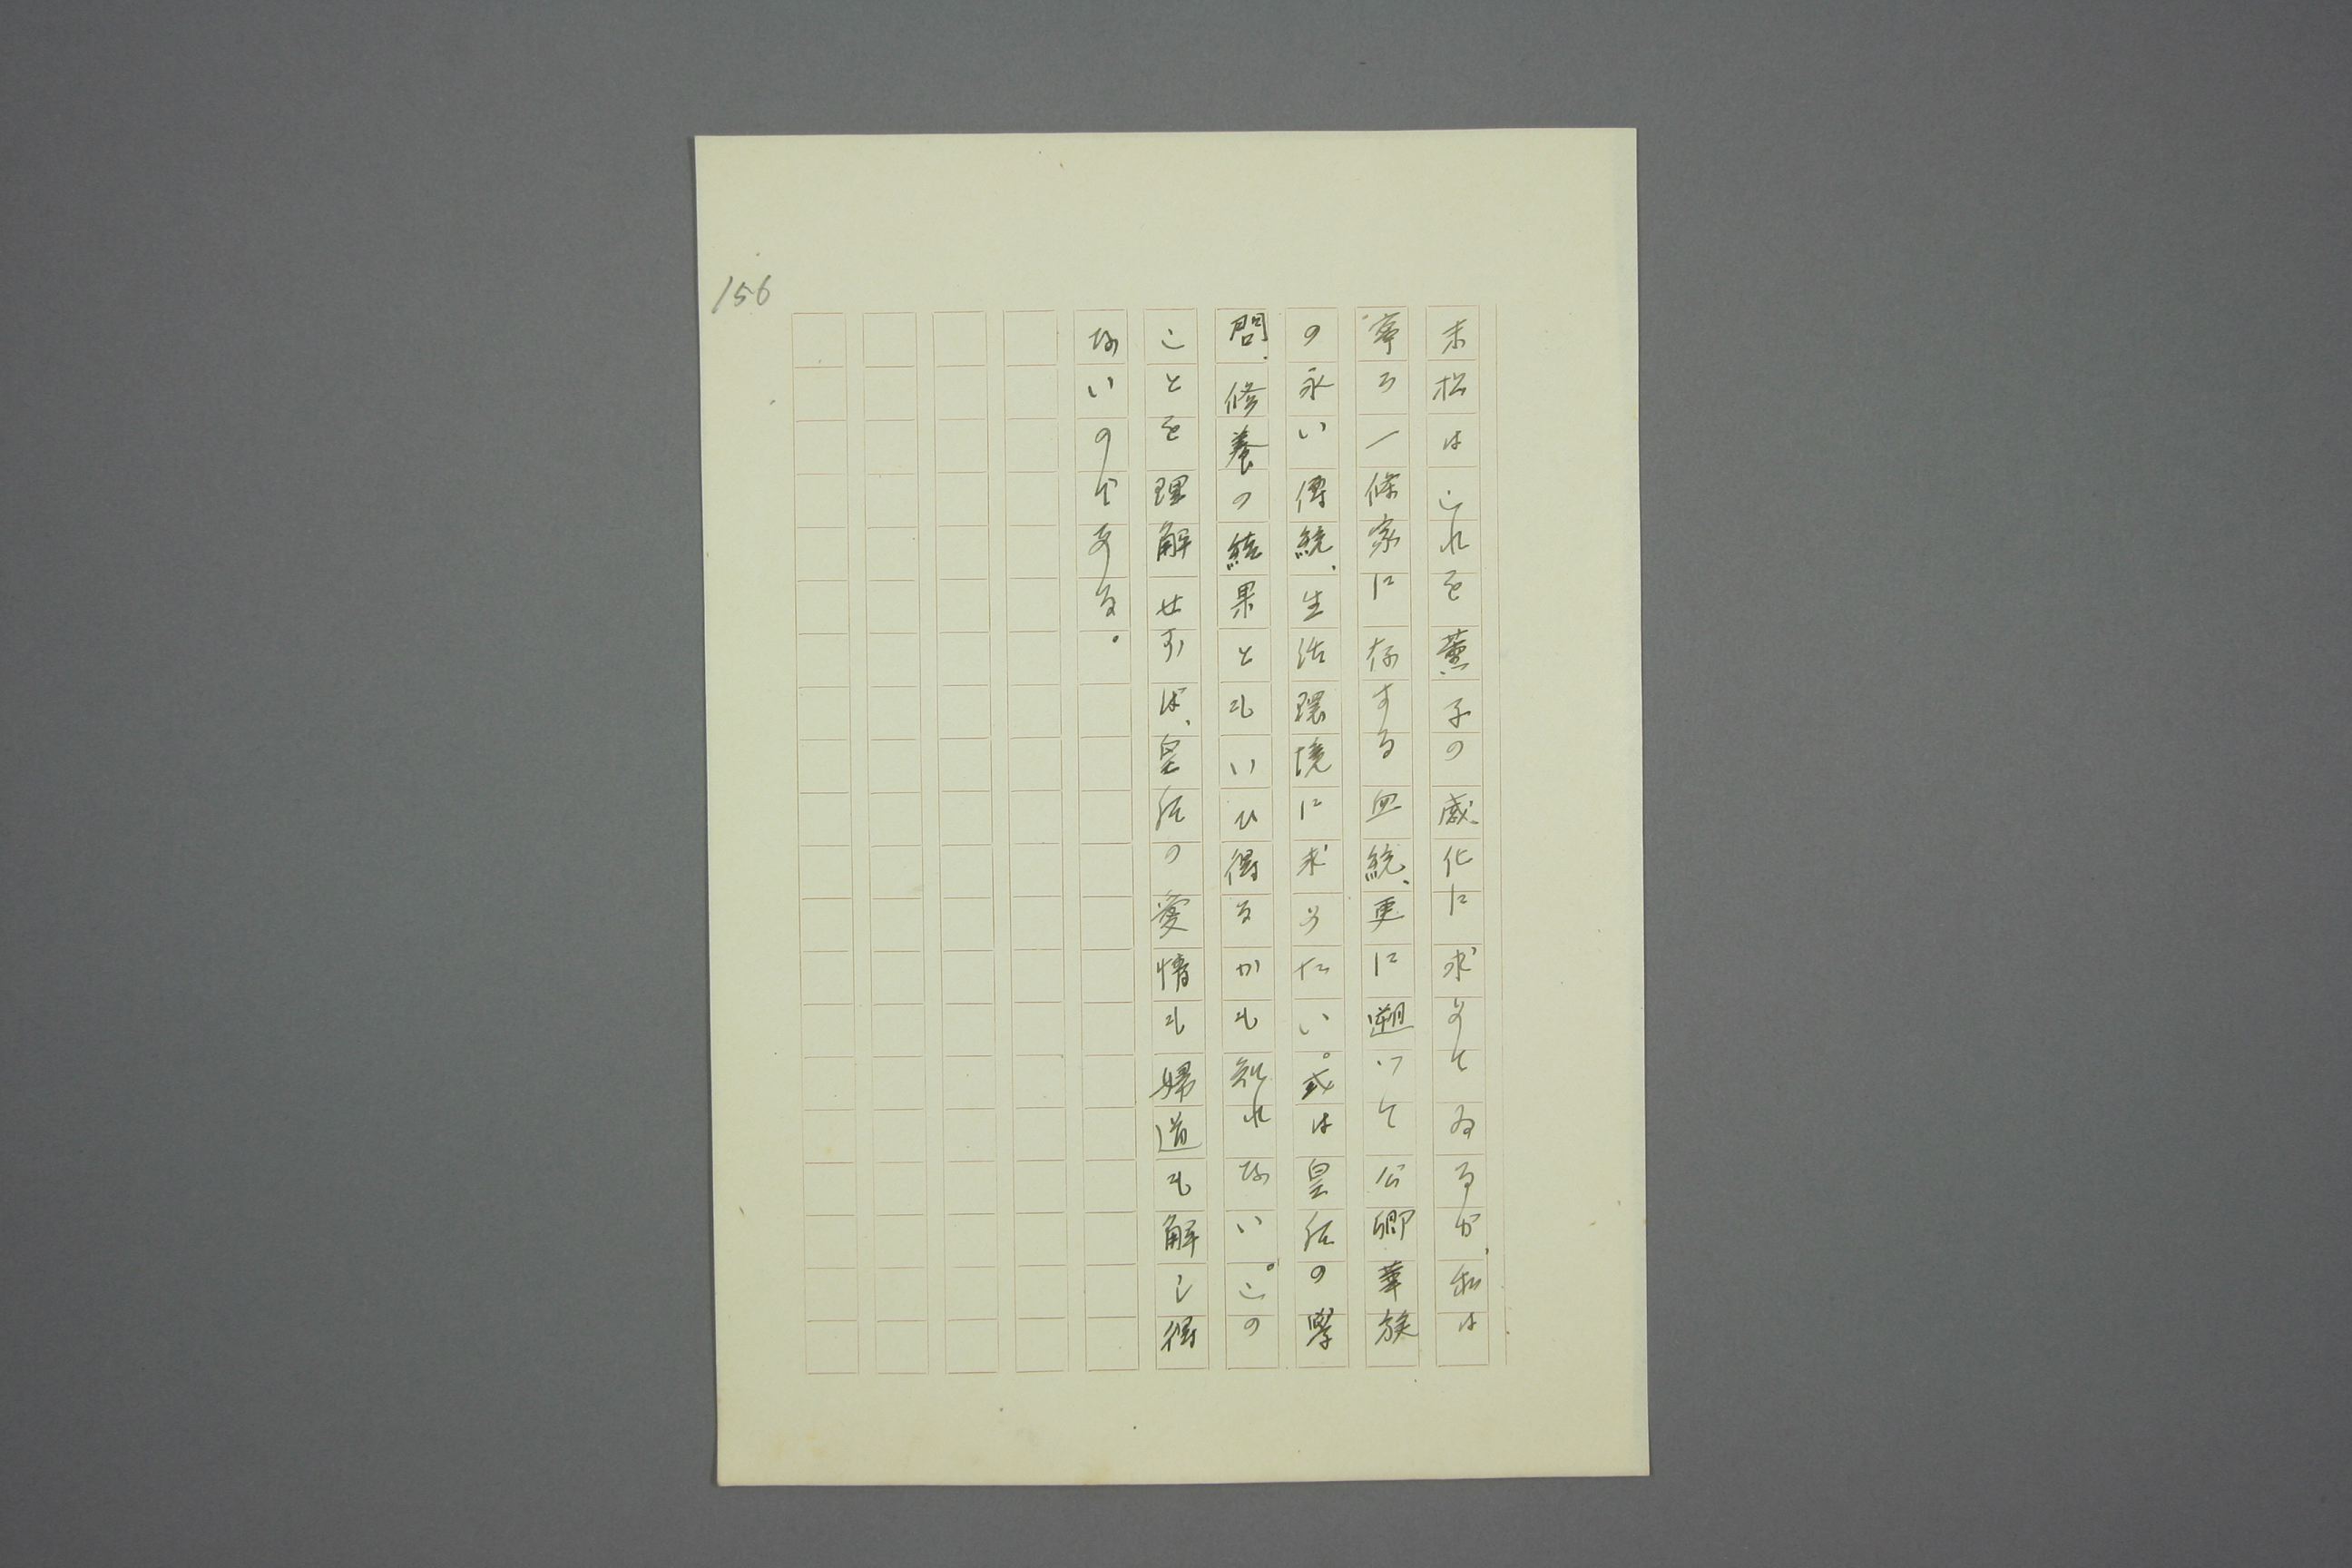 156
末松はこれを薫子の感化に求めてゐるが、私は
寧ろ一條家に存する血統、更に遡つて公卿華族
の永い傳統、生活環境に求めたい。或は皇后の學
問、修養の結果ともいひ得るかも知れない。この
ことを理解せずば、皇后の愛情も婦道も解し得
ないのである。